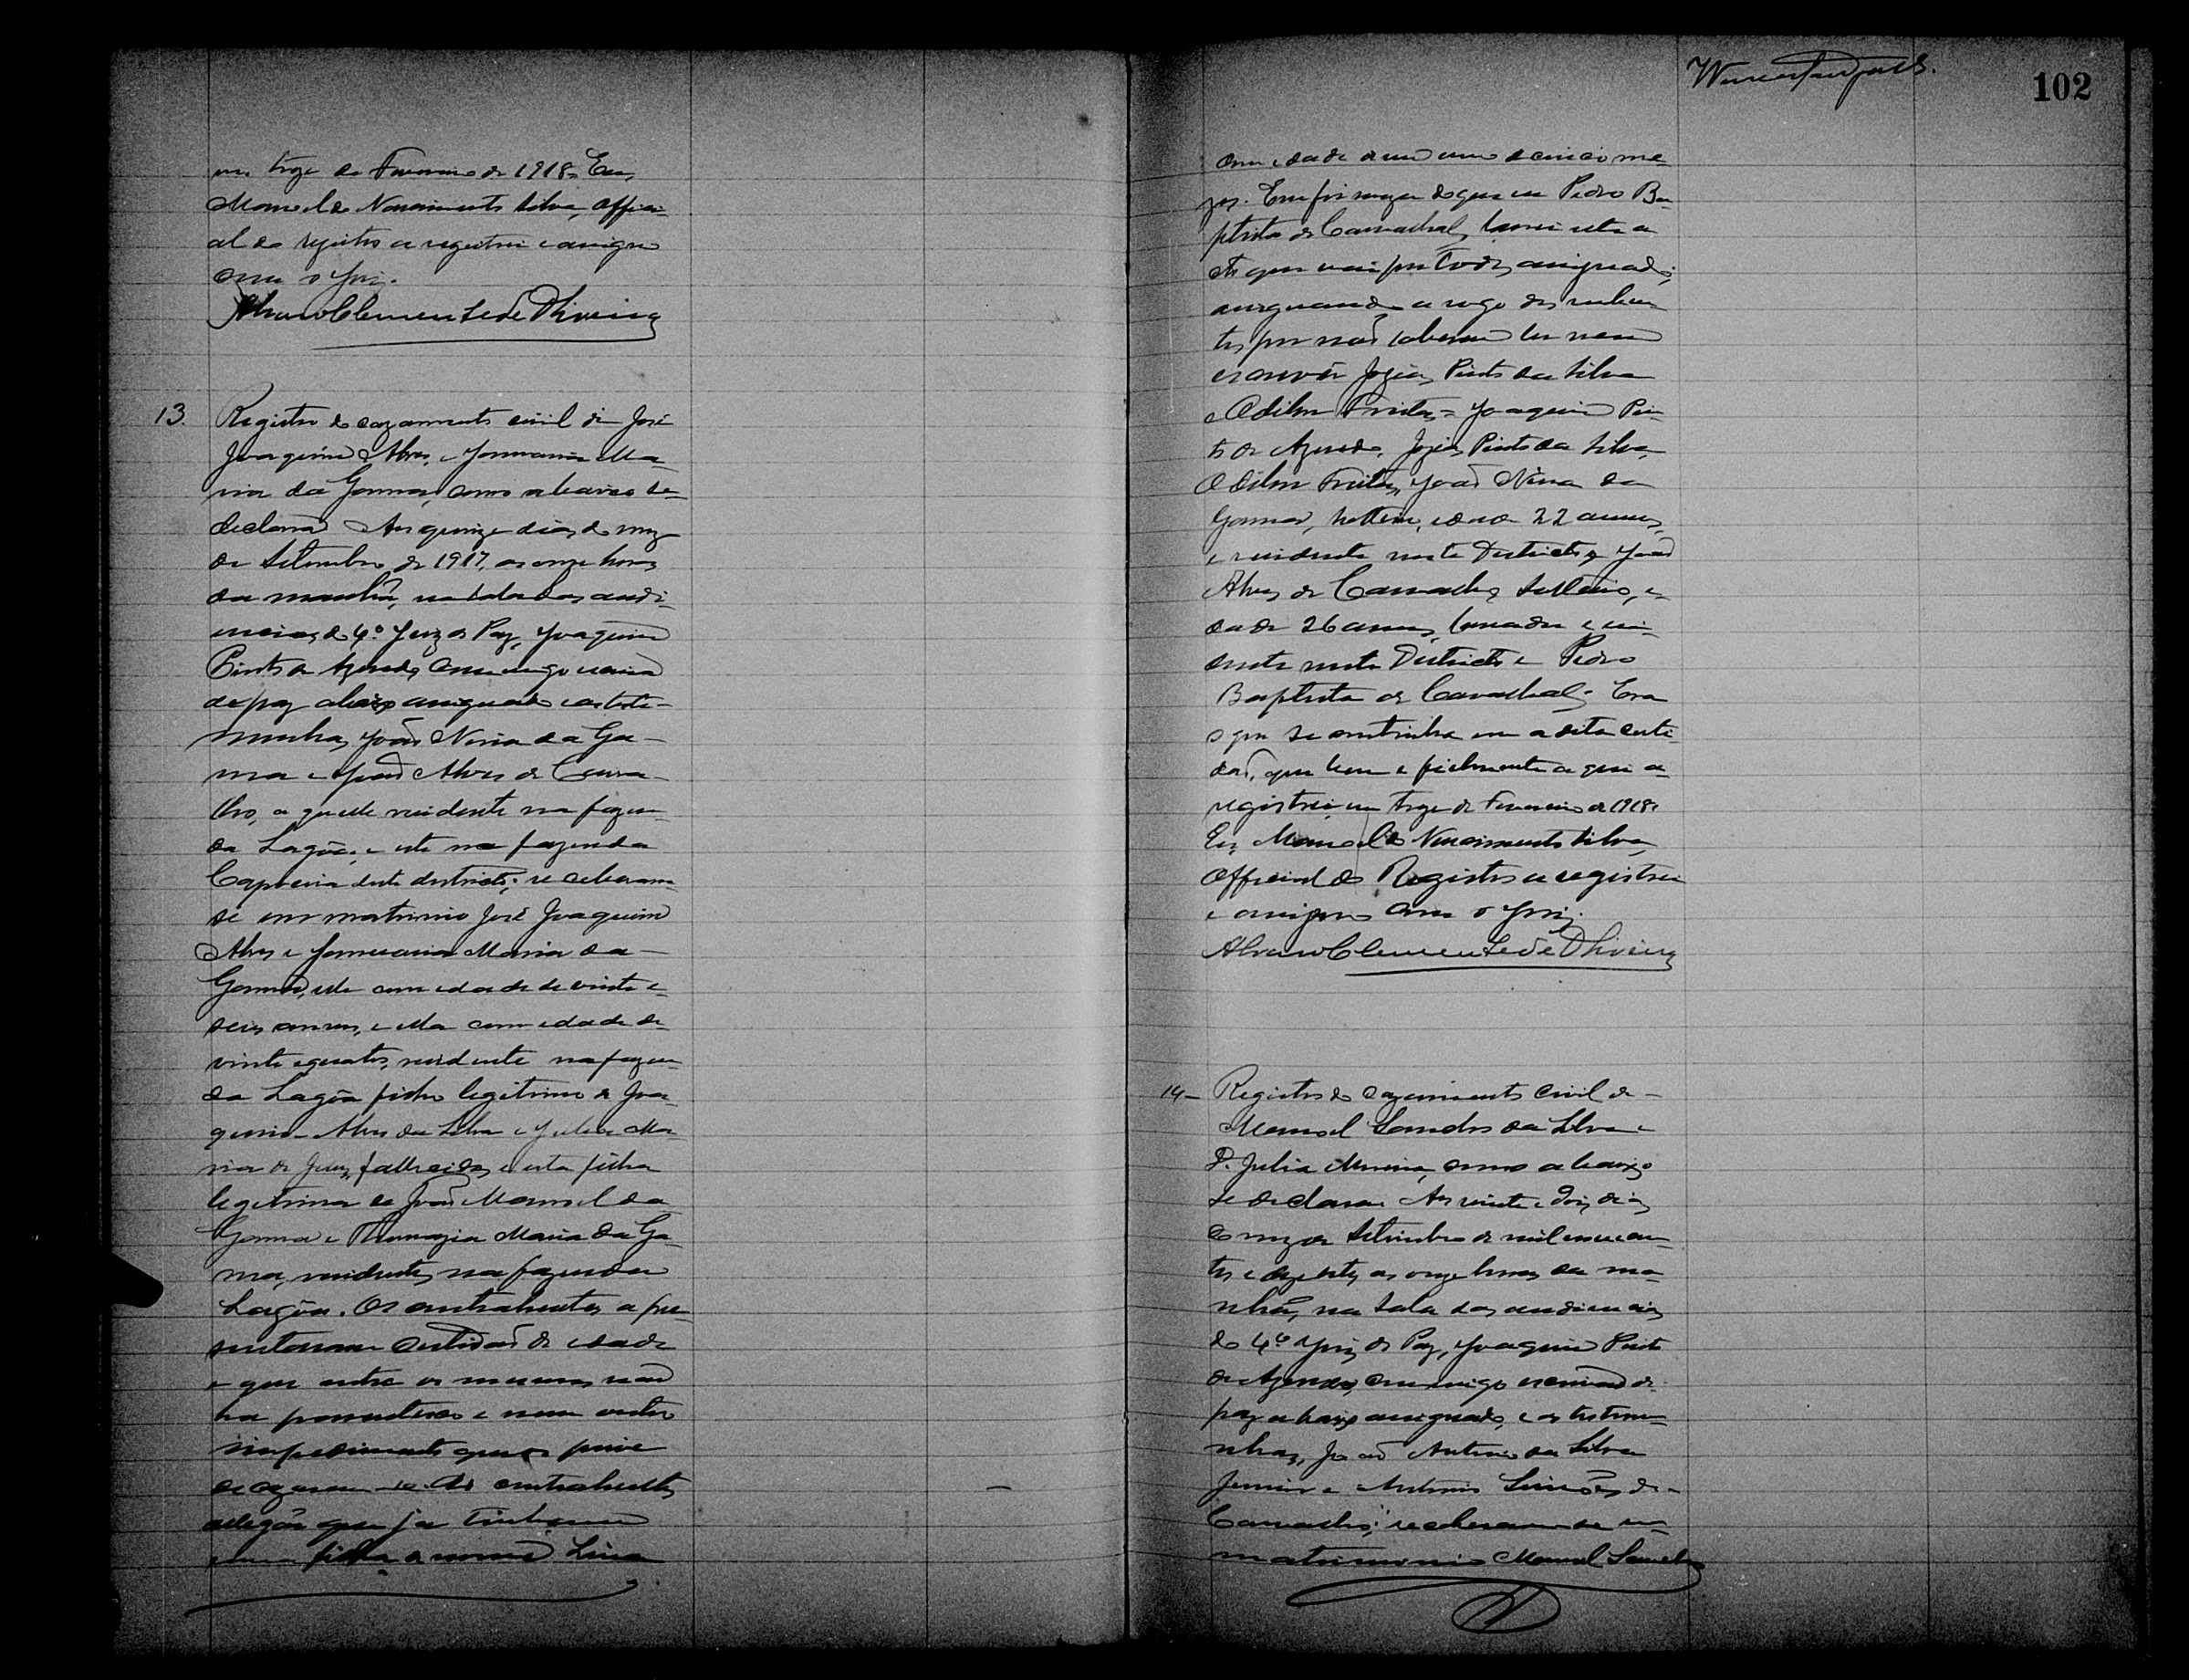 em treze de Fevereiro de 1918. Eu,
Manoel do Nascimento Silva, Offici-
al do registro a registrei e assigno
com o Juiz.
Alvaro Clemente de Oliveira
13. Registro do cazamento civil de José
Joaquim Alves, e Januaria Ma-
ria da Gamma, como abaixo se
declara. Aos quinze dias do mez
de Setembro de 1917, as onze horas
da manhã, na sala das audi-
encias do 4º Juiz de Paz, Joaquim
Pinto de Azevedo commigo escrivão
de paz abaixo assignado e as teste-
munhas, João Nina da Ga-
ma e João Alves de Carva-
lho, aquelle residente na fazen-
da Lagôa, e este na fazenda
Capoeira deste districto; receberam-
se em matrimonio José Joaquim
Alves e Januaria Maria da
Gamma, elle com edade de vinte e
seis annos, e ella com edade de
vinte e quatro, residente na fazen-
da Lagôa filho legitimo de Joa-
quim Alves da Silva e Julia Ma-
ria de Jesus, fallecidos e esta filha
legitima de João Manoel da
Gamma e Thomazia Maria da Ga-
ma, residentes na fazenda
Lagôa. Os contrahentes apre-
sentaram Certidão de edade
e que entre os mesmos não
ha parentesco e nem outro
impedimento que os prive
de cazarem-se. Os contrahentes
alegão que já tinham
uma filha de nome Lina
102
com edade de um anno e cinco me-
zes. Em firmeza do que eu Pedro Ba-
ptista de Carvalhal, lavrei este a
cto que vai por todos assignado;
assignando a rogo dos nuben-
tes por não saberem ler nem
escrever Jozias Pinto da Silva
e Odilon Freitas = Joaquim Pin-
to de Azevedo, Jozias Pinto da Silva,
Odilon Freitas, João Nina da
Gamma, solteiro, edade 22 annos,
e residente neste Districto, João
Alves de Carvalho, solteiro, e-
dade 26 annos, lavrador e resi-
dente neste Districto e Pedro
Baptista de Carvalhal. Era
o que se continha em a dita certi-
dão, que bem e fielmente aqui a
registrei, em treze de Fevereiro de 1918.
Eu, Manoel do Nascimento Silva,
Official do Registro a registrei
e assigno com o Juiz.
Alvaro Clemente de Oliveira
14 - Registro do cazamento civil de
Manoel Sandes da Silva e
D. Julia Moreira, como abaixo
se declara. Aos vinte e dois dias
do mez de Setembro de mil novecen-
tos e dezesete, as onze horas da ma-
nhã, na sala das audiencias
do 4º Juiz de Paz, Joaquim Pinto
de Azevedo, commigo escrivão de
paz abaixo assignado, e as testemu-
nhas, João Antonio da Silva
Junior e Antonio Simões de
Carvalho; receberam-se em
matrimonio Manoel Sandes